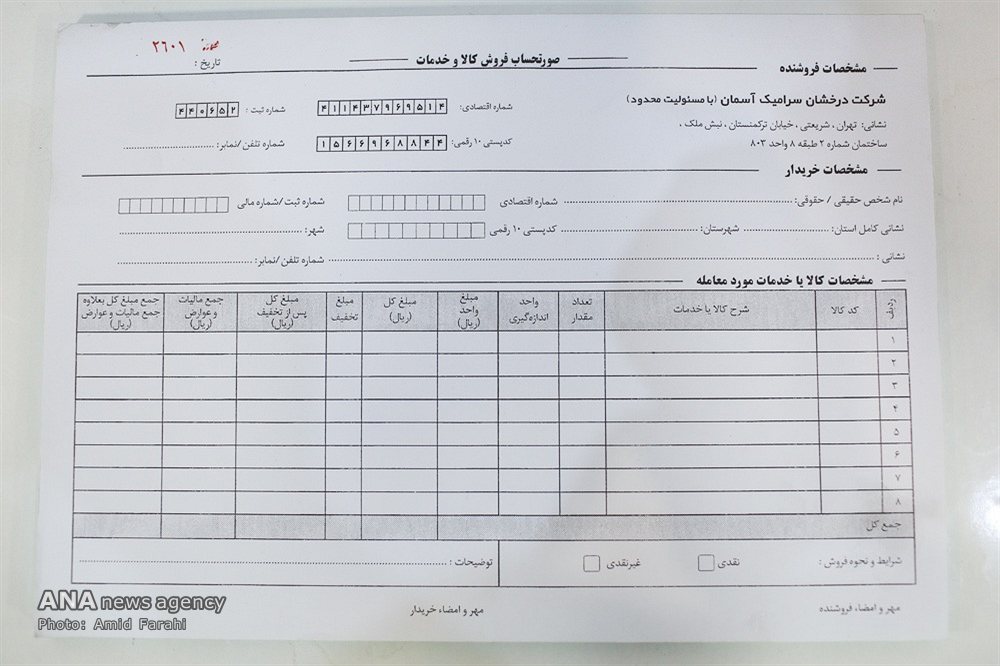 شماره ۲۶۰۱
تاریخ :
صورتحساب فروش کالا و خدمات
مشخصات فروشنده
شرکت درخشان سرامیک آسمان (با مسئولیت محدود)
شماره اقتصادی: ۴۱۱۴۳۷۹۶۹۵۱۴
شماره ثبت : ۴۴۰۶۵۲
نشانی: تهران ، شریعتی ، خیابان ترکمنستان ، نبش ملک ،
ساختمان شماره ۲ طبقه ۸ واحد ۸۰۳
کدپستی ۱۰ رقمی: ۱۵۶۶۹۶۸۸۴۴
شماره تلفن/نمابر:
مشخصات خریدار
نام شخص حقیقی / حقوقی: شماره اقتصادی شماره ثبت /شماره مالی
نشانی کامل استان: شهرستان: کدپستی ۱۰ رقمی شهر:
نشانی : شماره تلفن/نمابر:
مشخصات کالا یا خدمات مورد معامله
ردیف
کد کالا
شرح کالا یا خدمات
تعداد مقدار
واحد اندازه‌گیری
مبلغ واحد (ریال)
مبلغ کل (ریال)
مبلغ تخفیف
مبلغ کل پس از تخفیف (ریال)
جمع مالیات و عوارض (ریال)
جمع مبلغ کل بعلاوه جمع مالیات و عوارض (ریال)
۱
۲
۳
۴
۵
۶
۷
۸
جمع کل
شرایط و نحوه فروش : نقدی غیرنقدی
توضیحات :
مهر و امضاء فروشنده
مهر و امضاء خریدار
ANA news agency
Photo: Amid Farahi